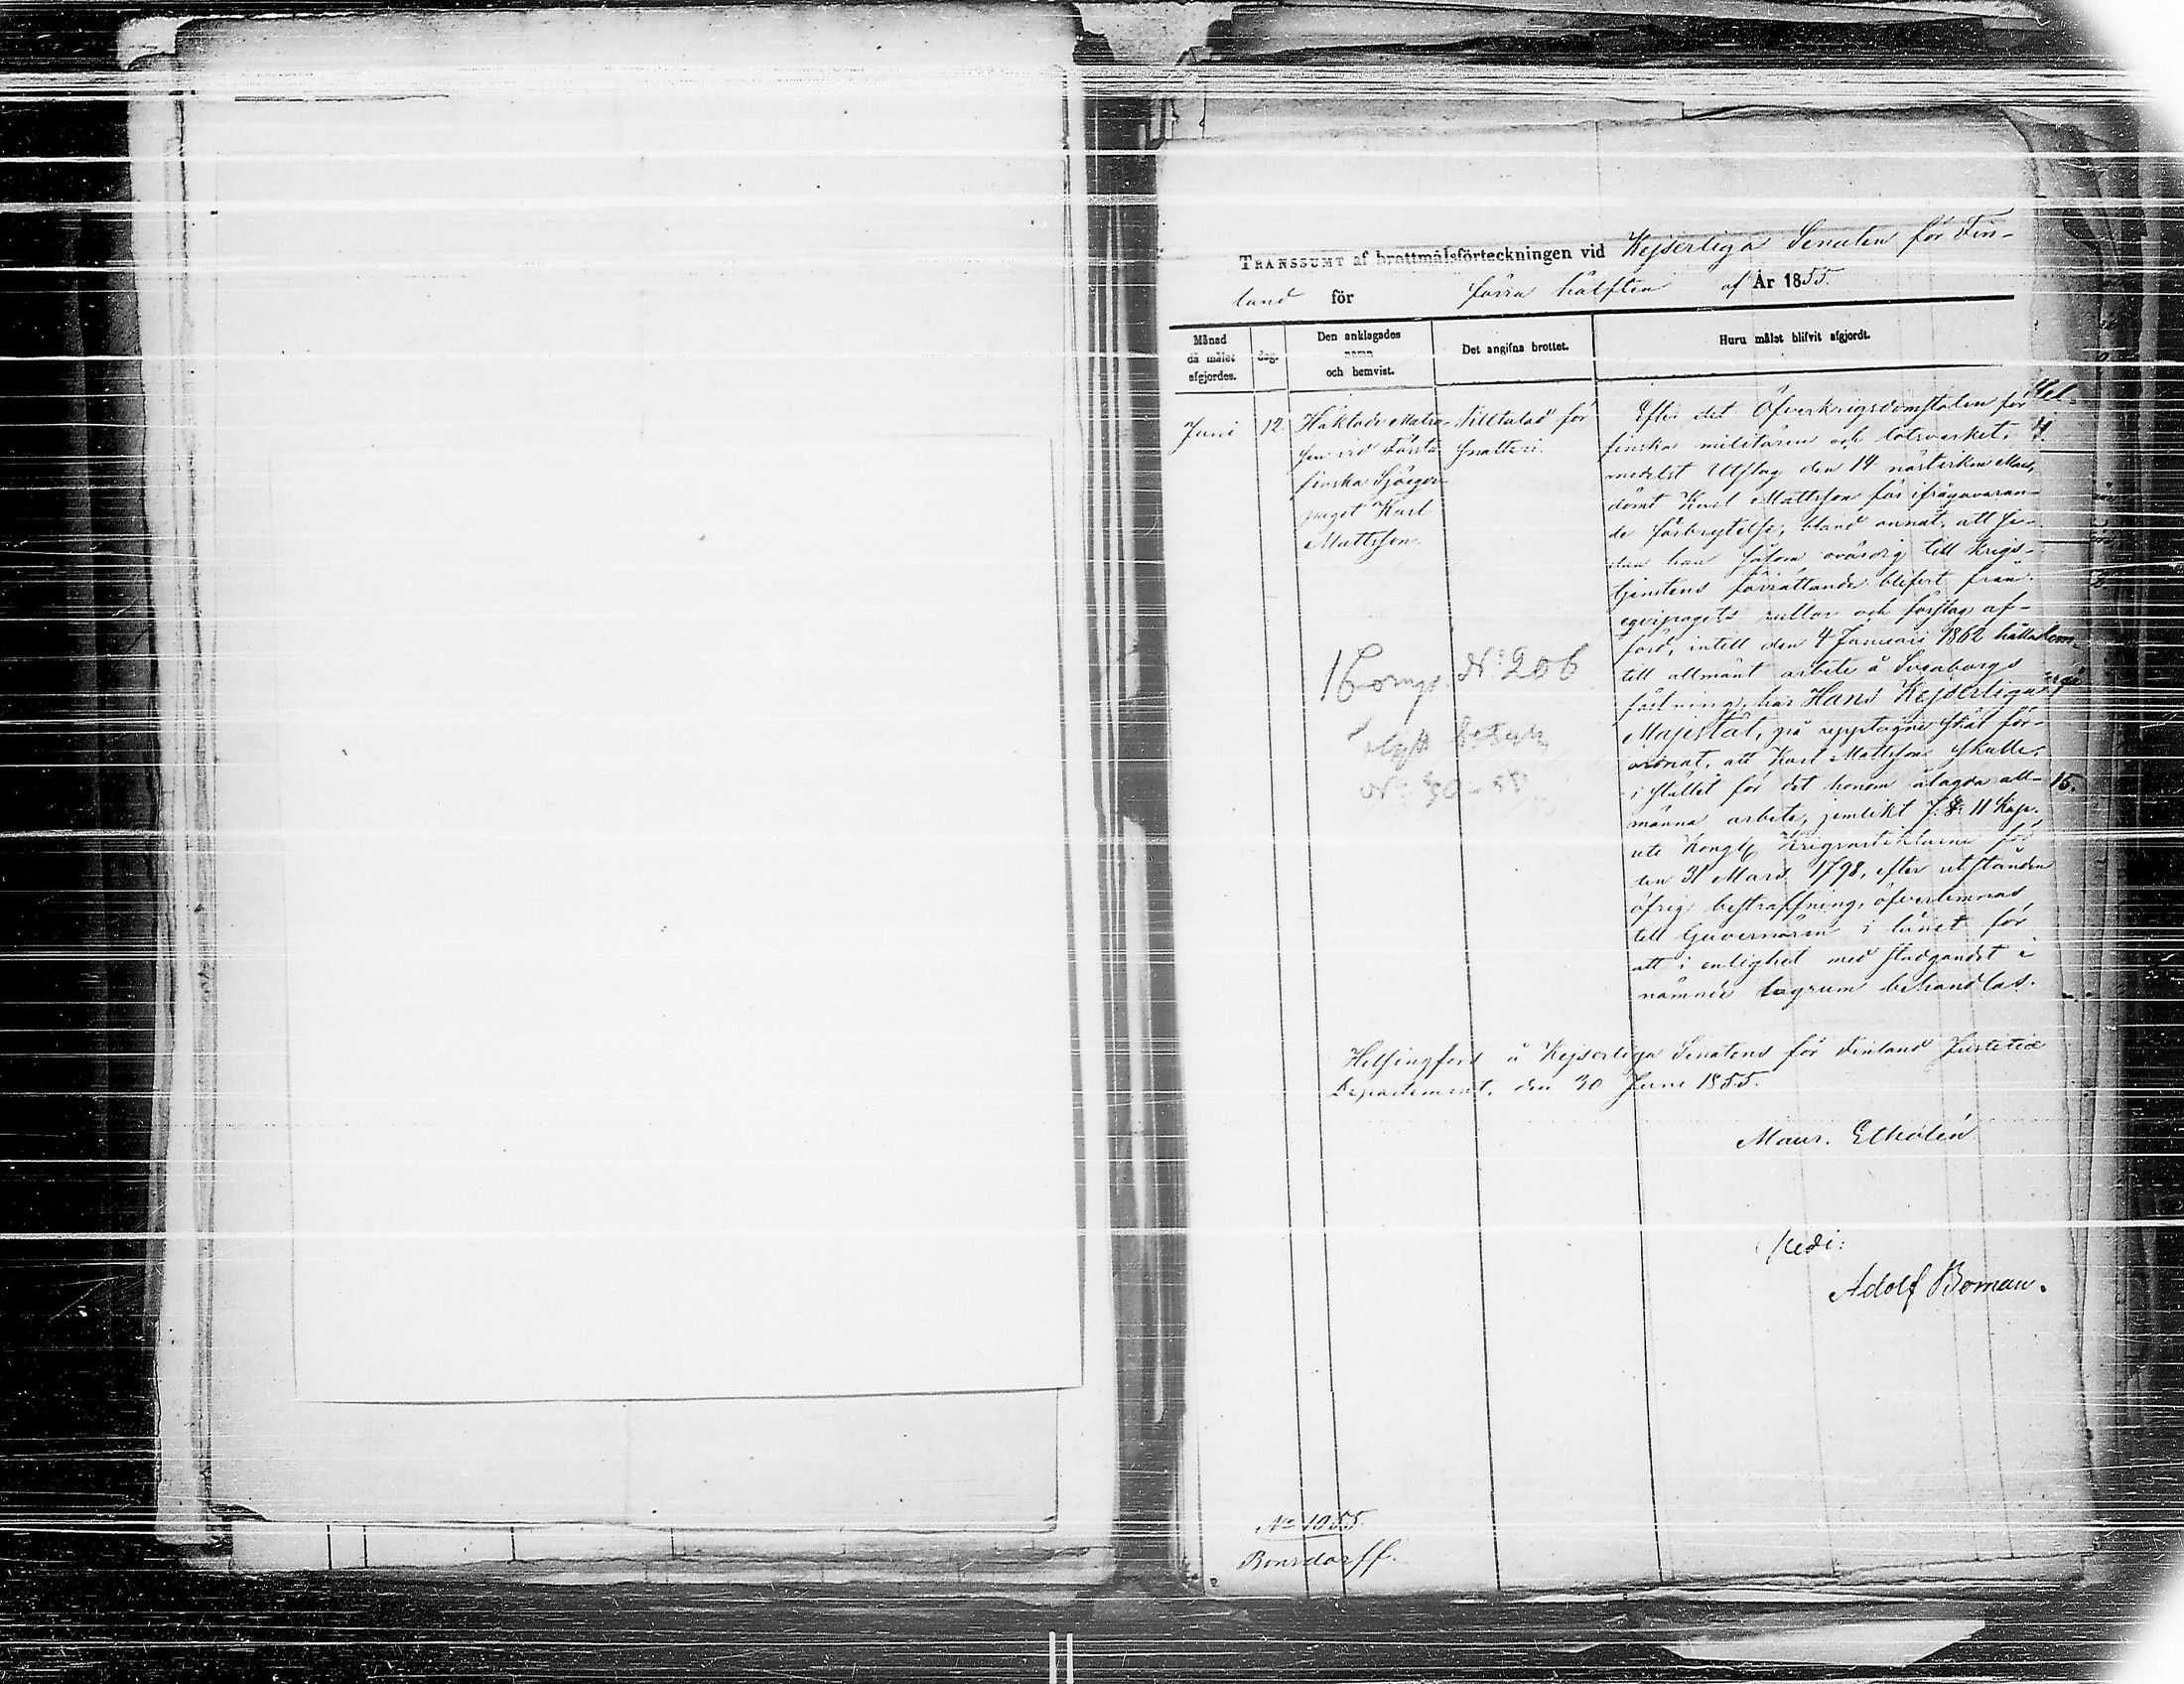 TRANSSUMT af brottmålsförteckningen vid Kejserliga Senaten för Fin-
land för förra hälften af År 1855.
Månad då målet afgjordes.
dag.
Den anklagades namn och hemvist.
Det angifna brottet.
Huru målet blifvit afgjordt.
Juni
12
Häktade Matro-
sen vid Första
finska Sjöeqvi-
paget Karl
Mattsson.
Tilltalad för
snatteri.
Efter det Öfverkrigsdomstolen för
finska militären och lotsverket,
medelst Utslag den 14 nästvikne Mars,
dömt Karl Mattsson för ifrågavaran-
de förbrytelse, bland annat, att se-
dan han såsom ovärdig till krigs-
tjenstens förrättande blifvit från
eqvipagets rullor och förslag af-
förd, intill den 4 Januari 1862 hållas
till allmänt arbete å Sveaborgs
fästning, har Hans Kejserliga
Majestät, på upptagne skäl för-
ordnat, att Karl Mattsson skulle,
i stället för det honom ålagda all-
männa arbete, jemlikt 7. §. 11 Kap.
uti Kongl. Krigsartiklarne för
den 31 Mars 1798, efter utstånden
öfrig bestraffning, öfverlemnas
till Guvernören i länet för
att i enlighet med stadgandet i
nämnde lagrum behandlas.
N:o 206
Helsingfors å Kejserliga Senatens för Finland Justitiæ
Departement, den 30 Juni 1855.
Maur. Etholén
Adolf Boman.
No 1055.
Bonsdorff.